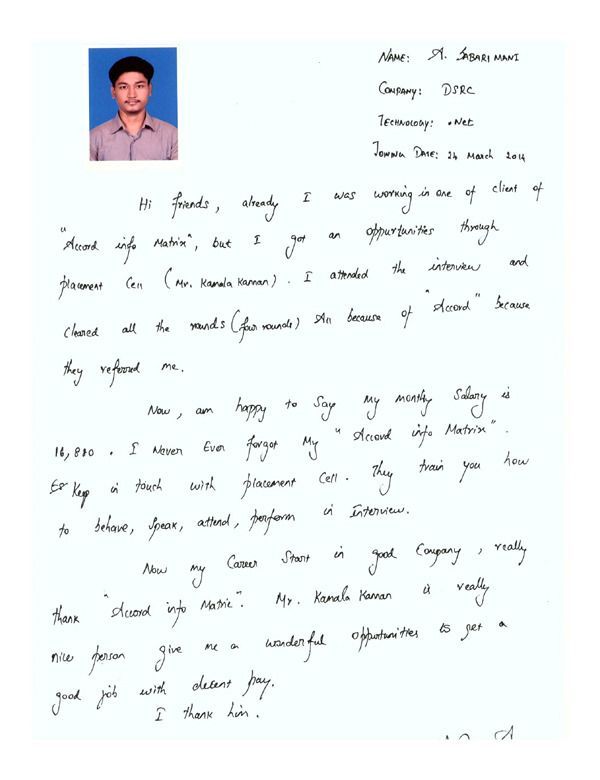 NAME: A. SABARI MANI
COMPANY: DSRC
TECHNOLOGY: .Net
JOINING DATE: 24 March 2014
Hi friends, already I was working in one of client of
"Accord info Matrix", but I got an oppurtunities through
placement Cell (Mr. Kamala Kannan). I attended the interview and
cleared all the rounds (four rounds) All because of "Accord" because
they referred me.
Now, am happy to Say My monthly Salary is
16,880. I Never Ever forgot My "Accord info Matrix".
Keep in touch with placement Cell. They train you how
to behave, Speak, attend, perform in Interview.
Now my Career Start in good Company, really
thank "Accord info Matrix". Mr. Kamala Kannan is really
nice person give me a wonderful opportunities to get a
good job with decent pay.
I thank him.